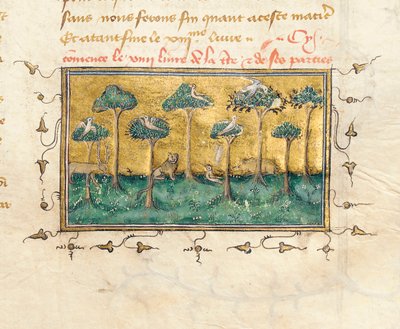 sans nous ferons fin quant a ceste matie
Et atant fine le xiiii me livre
Cy
comence le livre de la tre & de ses parties